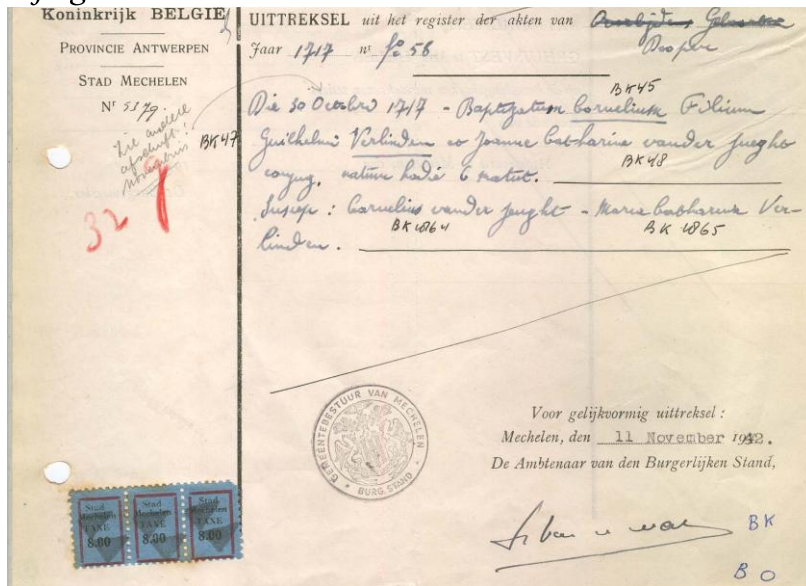 Koninkrijk BELGIE
PROVINCIE ANTWERPEN
STAD MECHELEN
Nr 5379.
Zie andere
afschrift!
32
UITTREKSEL uit het register der akten van Overlijden Geboorten
Doopen
Jaar 1717 nr fo 56
BK45
Die 30 Octobris 1717 - Baptizatum Cornelium Filium
BK47
Guilhelmi Verlinden et Joanne Catharine vander
BK48
conjug. natum hodie 6 matut.
Suscep: Cornelius vander - Maria Catharina Ver-
linden.
BK 1864
BK 1865
GEMEENTEBESTUUR VAN MECHELEN
BURG. STAND
Voor gelijkvormig uittreksel :
Mechelen, den 11 November 1942.
De Ambtenaar van den Burgerlijken Stand,
Stad Mechelen TAXE 8.00
Stad Mechelen TAXE 8.00
Stad Mechelen TAXE 8.00
BK
B O